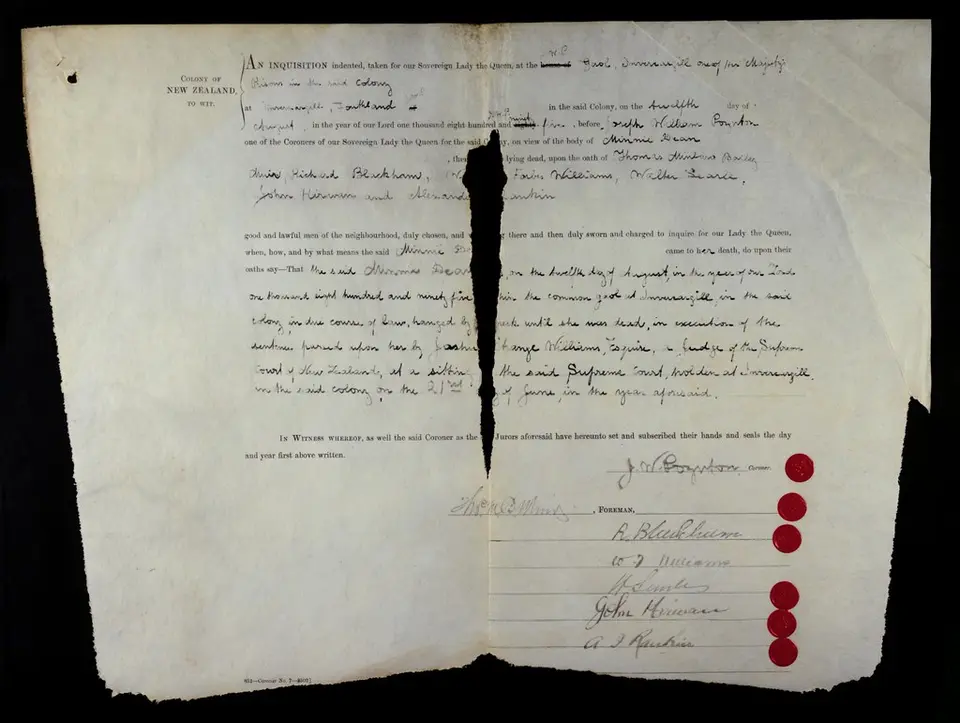 COLONY OF
NEW ZEALAND,
TO WIT.
AN INQUISITION indented, taken for our Sovereign Lady the Queen, at the Gaol, Invercargill one of Her Majesty's
Prisons in the said Colony
at Invercargill, Southland in the said Colony, on the twelfth day of
August, in the year of our Lord one thousand eight hundred and ninety five, before Joseph William Poynton
one of the Coroners of our Sovereign Lady the Queen for the said, on view of the body of Minnie Dean
lying dead, upon the oath of Thomas
Muir, Richard Blackham, Forbes Williams, Walter Searle,
John Kirwan and Rankin
good and lawful men of the neighbourhood, duly chosen, and there and then duly sworn and charged to inquire for our Lady the Queen,
when, how, and by what means the said Minnie came to her death, do upon their
oaths say—That the said Minnie, on the twelfth day of August, in the year of our Lord
one thousand eight hundred and ninety five the common gaol at Invercargill, in the said
colony, in due course of law, hanged by neck until she was dead, in execution of the
sentence passed upon her by Williams, Esquire, a Judge of the Supreme
Court of New Zealand, at a sitting the said Supreme Court, holden at Invercargill,
in the said colony on the 21st of June, in the year aforesaid.
IN WITNESS WHEREOF, as well the said Coroner as the Jurors aforesaid have hereunto set and subscribed their hands and seals the day
and year first above written.
J. W. Poynton
, FOREMAN,
R. Blackham
W F Williams
W Searle
John Kirwan
A J Rankin